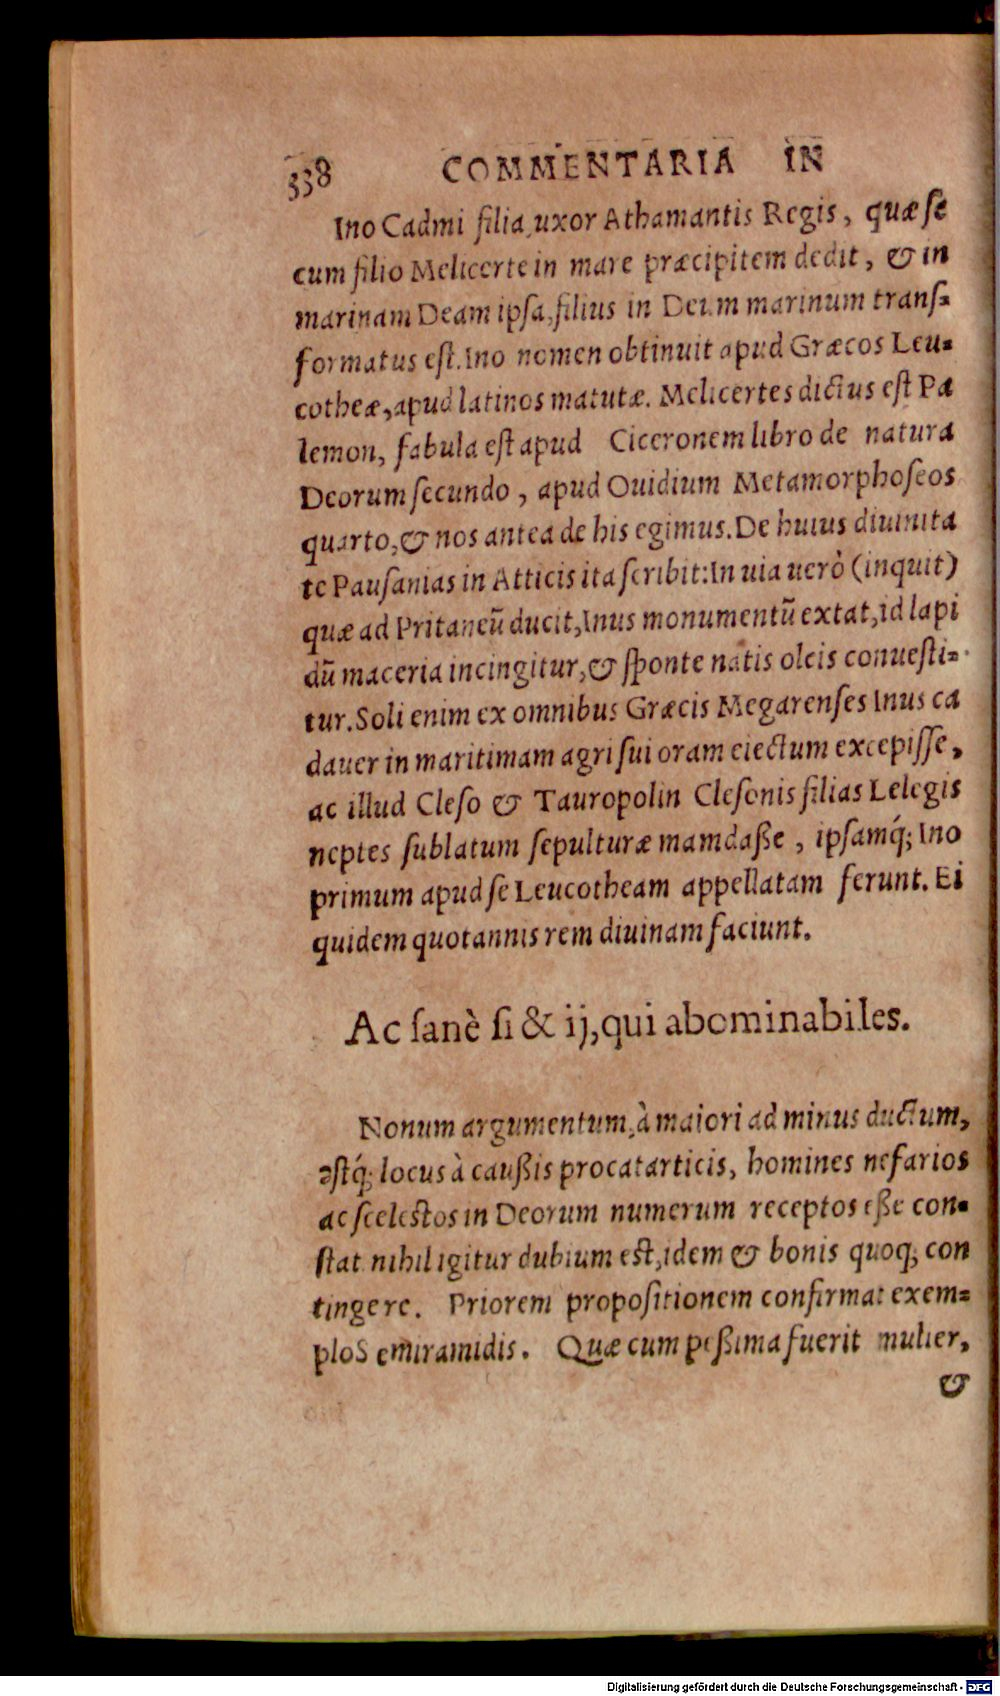 338 COMMENTARIA IN
Ino Cadmi filia, uxor Athamantis Regis, quæ se
cum filio Melicerte in mare præcipitem dedit, & in
marinam Deam ipsa, filius in Deum marinum transs-
formatus est. Ino nomen obtinuit apud Græcos Leu-
cotheæ, apud latinos matutæ. Melicertes dictus est Pa
lemon, fabula est apud Ciceronem libro de natura
Deorum secundo, apud Ouidium Metamorphoseos
quarto, & nos antea de his egimus. De huius diuinita
te Pausanias in Atticis ita scribit: In uia uerò (inquit)
quæ ad Pritaneũ ducit, Inus monumentũ extat, id lapi
dũ maceria incingitur, & sponte natis oleis conuesti-
tur. Soli enim ex omnibus Græcis Megarenses Inus ca
dauer in maritimam agri sui oram eiectum excepisse,
ac illud Cleso & Tauropolin Clesonis filias Lelegis
neptes sublatum sepulturæ mamdaße, ipsamq́; Ino
primum apud se Leucotheam appellatam ferunt. Ei
quidem quotannis rem diuinam faciunt.
Ac sanè si & ij, qui abominabiles.
Nonum argumentum, à maiori ad minus ductum,
estq́; locus à caußis procatarticis, homines nefarios
ac scelestos in Deorum numerum receptos eße con-
stat nihil igitur dubium est, idem & bonis quoq; con
tingere. Priorem propositionem confirmat exem-
ploS emiramidis. Quæ cum peßima fuerit mulier,
&
Digitalisierung gefördert durch die Deutsche Forschungsgemeinschaft - DFG